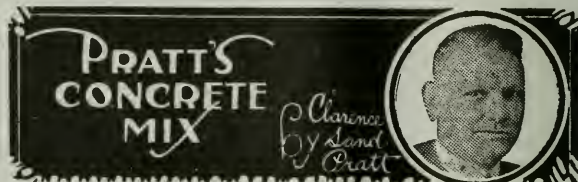 PRATT'S
CONCRETE
MIX
by Clarence
Sand
Pratt